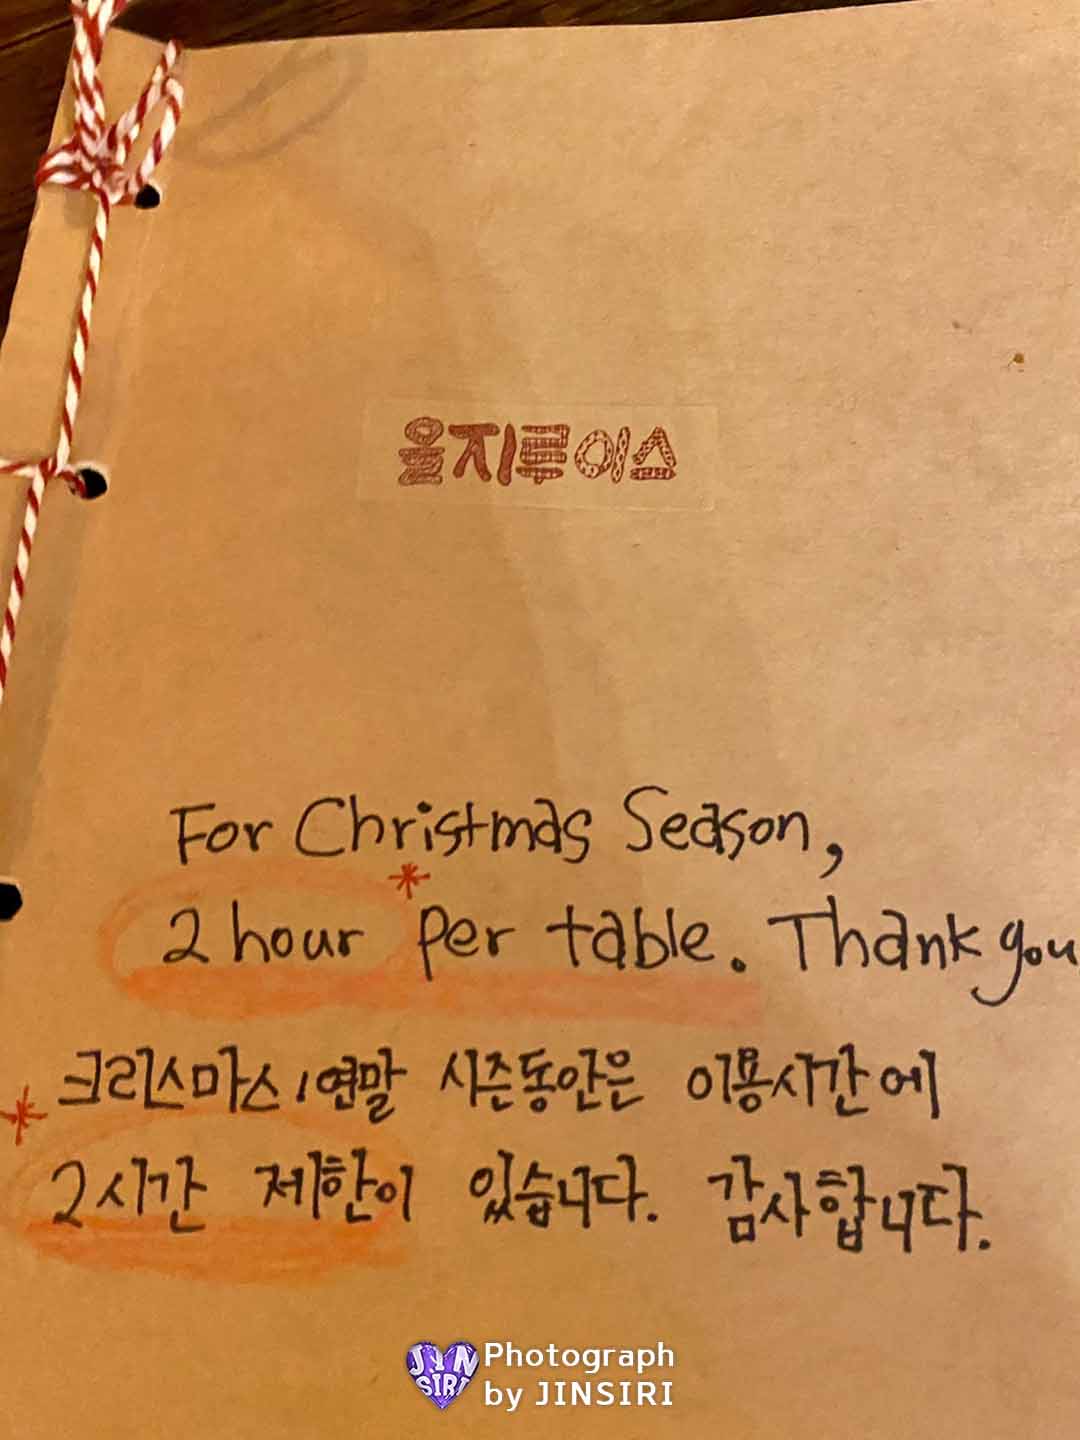 을지루이스
For Christmas Season,
2 hour * per table. Thank you
* 크리스마스/연말 시즌동안은 이용시간에
2시간 제한이 있습니다. 감사합니다.
JIN SIRI
Photograph
by JINSIRI